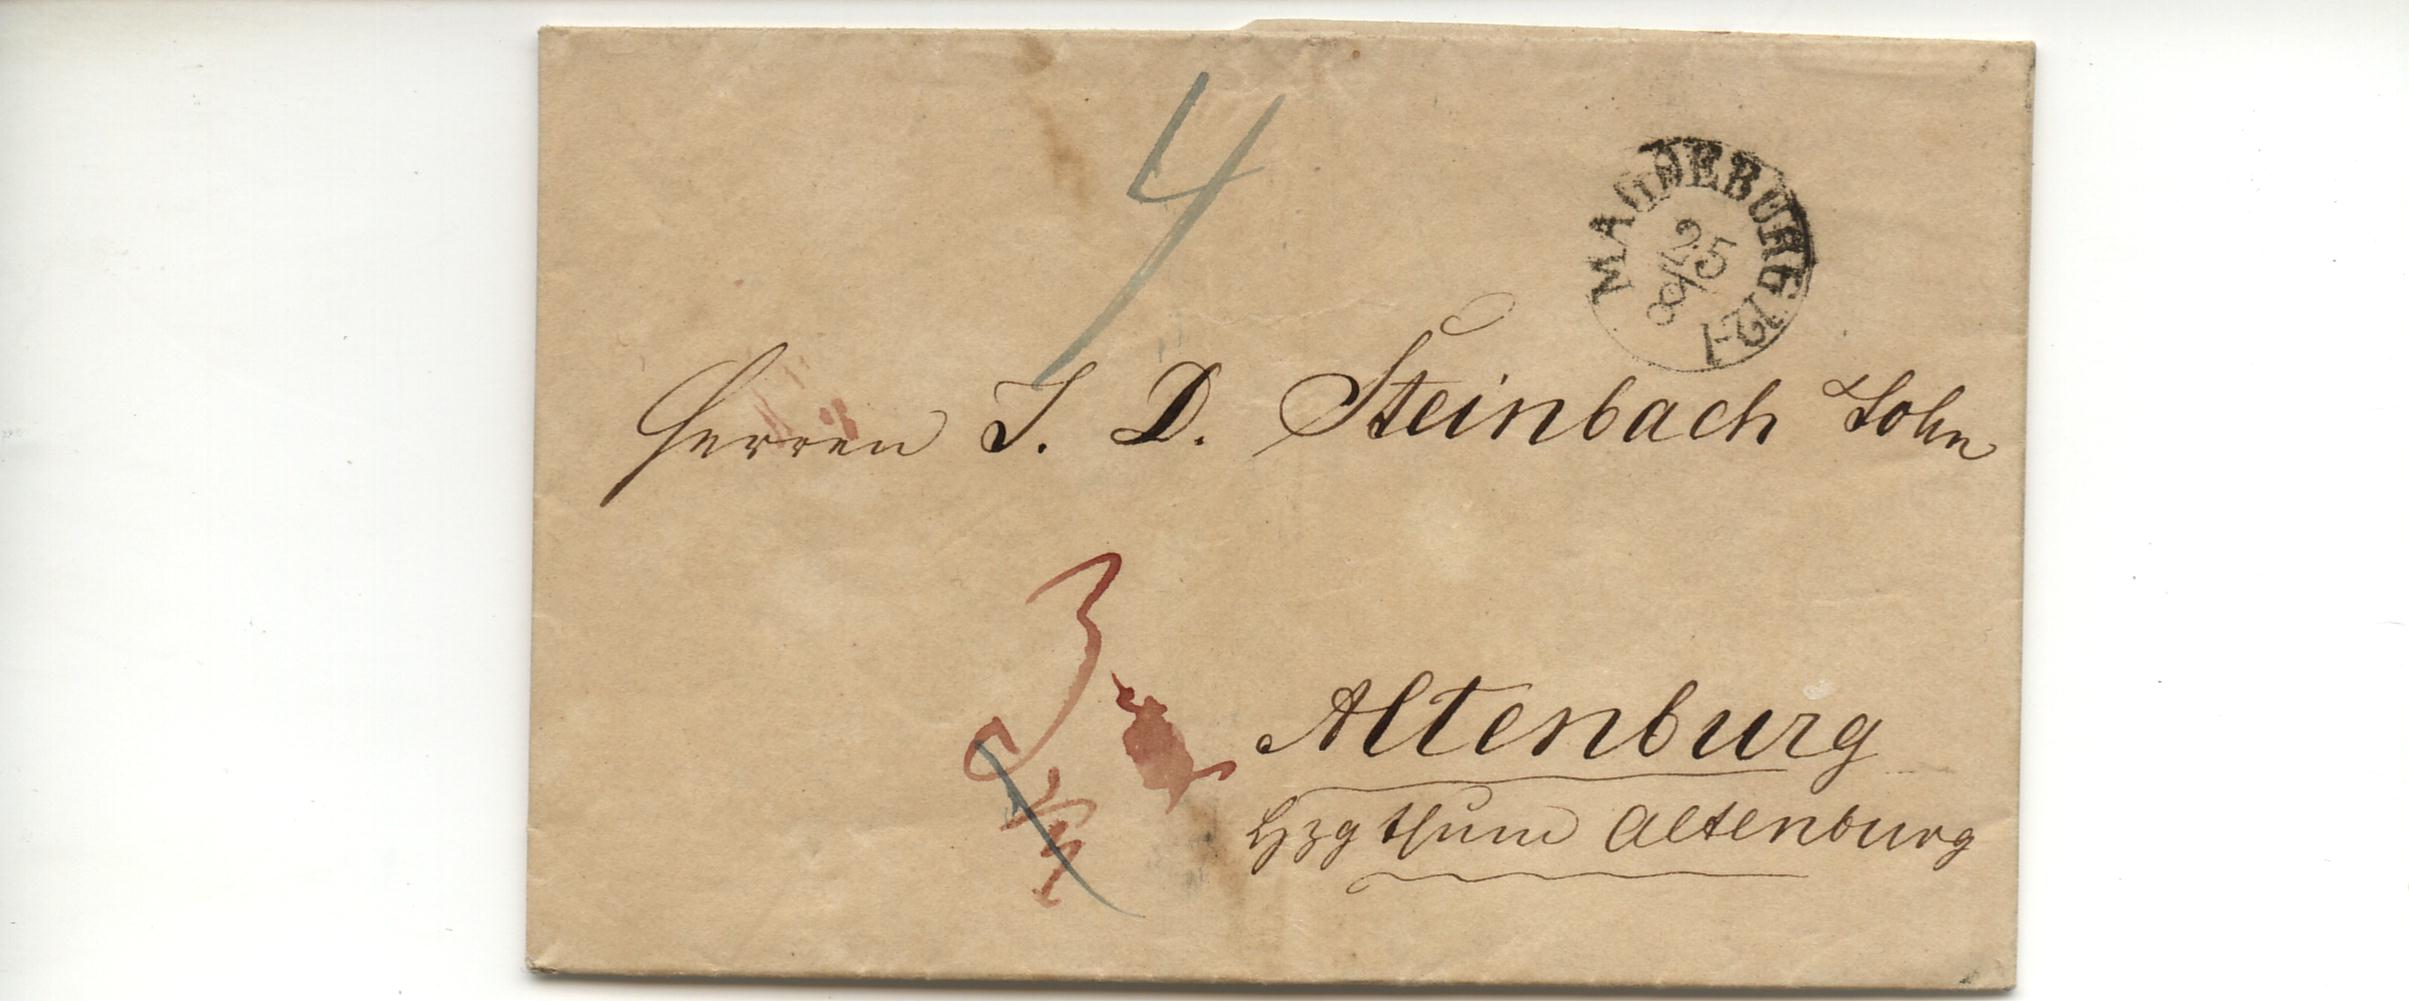 4
MAGDEBURG
25
8
12-1
Herren J. D. Steinbach Sohn
3
Altenburg
Hzgthum Altenburg